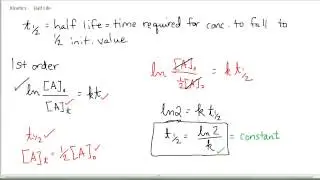 Kinetics Half Life
t½ = half life = time required for conc. to fall to
½ init. value
1st order
ln [A]₀/[A]ₜ = kt
t½
[A]ₜ = ½[A]₀
ln [A]₀/½[A]₀ = k t½
ln2 = k t½
t½ = ln 2/k = constant